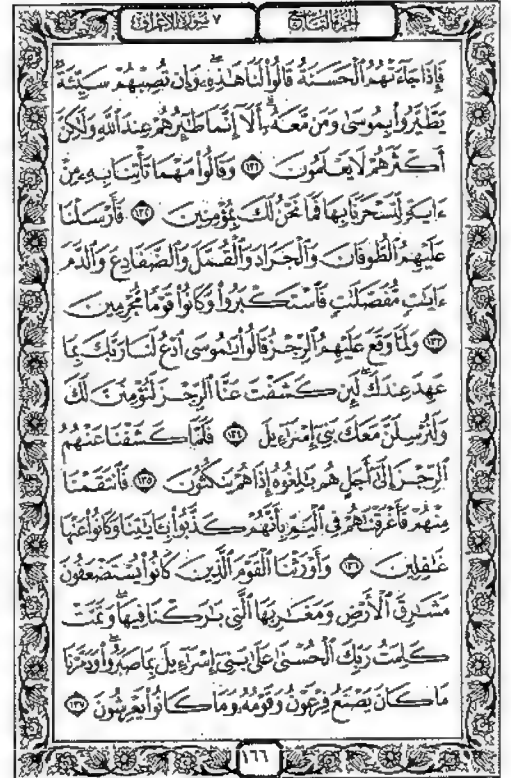 الجزء التاسع
٧ سورة الأعراف
فَإِذَا جَآءَتْهُمُ ٱلْحَسَنَةُ قَالُوا۟ لَنَا هَٰذِهِۦ ۖ وَإِن تُصِبْهُمْ سَيِّئَةٌ
يَطَّيَّرُوا۟ بِمُوسَىٰ وَمَن مَّعَهُۥٓ ۗ أَلَآ إِنَّمَا طَٰٓئِرُهُمْ عِندَ ٱللَّهِ وَلَٰكِنَّ
أَكْثَرَهُمْ لَا يَعْلَمُونَ ١٣١ وَقَالُوا۟ مَهْمَا تَأْتِنَا بِهِۦ مِنْ
ءَايَةٍ لِّتَسْحَرَنَا بِهَا فَمَا نَحْنُ لَكَ بِمُؤْمِنِينَ ١٣٢ فَأَرْسَلْنَا
عَلَيْهِمُ ٱلطُّوفَانَ وَٱلْجَرَادَ وَٱلْقُمَّلَ وَٱلضَّفَادِعَ وَٱلدَّمَ
ءَايَٰتٍ مُّفَصَّلَٰتٍ فَٱسْتَكْبَرُوا۟ وَكَانُوا۟ قَوْمًا مُّجْرِمِينَ
١٣٣ وَلَمَّا وَقَعَ عَلَيْهِمُ ٱلرِّجْزُ قَالُوا۟ يَٰمُوسَى ٱدْعُ لَنَا رَبَّكَ بِمَا
عَهِدَ عِندَكَ ۖ لَئِن كَشَفْتَ عَنَّا ٱلرِّجْزَ لَنُؤْمِنَنَّ لَكَ
وَلَنُرْسِلَنَّ مَعَكَ بَنِىٓ إِسْرَٰٓءِيلَ ١٣٤ فَلَمَّا كَشَفْنَا عَنْهُمُ
ٱلرِّجْزَ إِلَىٰٓ أَجَلٍ هُم بَٰلِغُوهُ إِذَا هُمْ يَنكُثُونَ ١٣٥ فَٱنتَقَمْنَا
مِنْهُمْ فَأَغْرَقْنَٰهُمْ فِى ٱلْيَمِّ بِأَنَّهُمْ كَذَّبُوا۟ بِـَٔايَٰتِنَا وَكَانُوا۟ عَنْهَا
غَٰفِلِينَ ١٣٦ وَأَوْرَثْنَا ٱلْقَوْمَ ٱلَّذِينَ كَانُوا۟ يُسْتَضْعَفُونَ
مَشَٰرِقَ ٱلْأَرْضِ وَمَغَٰرِبَهَا ٱلَّتِى بَٰرَكْنَا فِيهَا ۖ وَتَمَّتْ
كَلِمَتُ رَبِّكَ ٱلْحُسْنَىٰ عَلَىٰ بَنِىٓ إِسْرَٰٓءِيلَ بِمَا صَبَرُوا۟ ۖ وَدَمَّرْنَا
مَا كَانَ يَصْنَعُ فِرْعَوْنُ وَقَوْمُهُۥ وَمَا كَانُوا۟ يَعْرِشُونَ ١٣٧
١٦٦